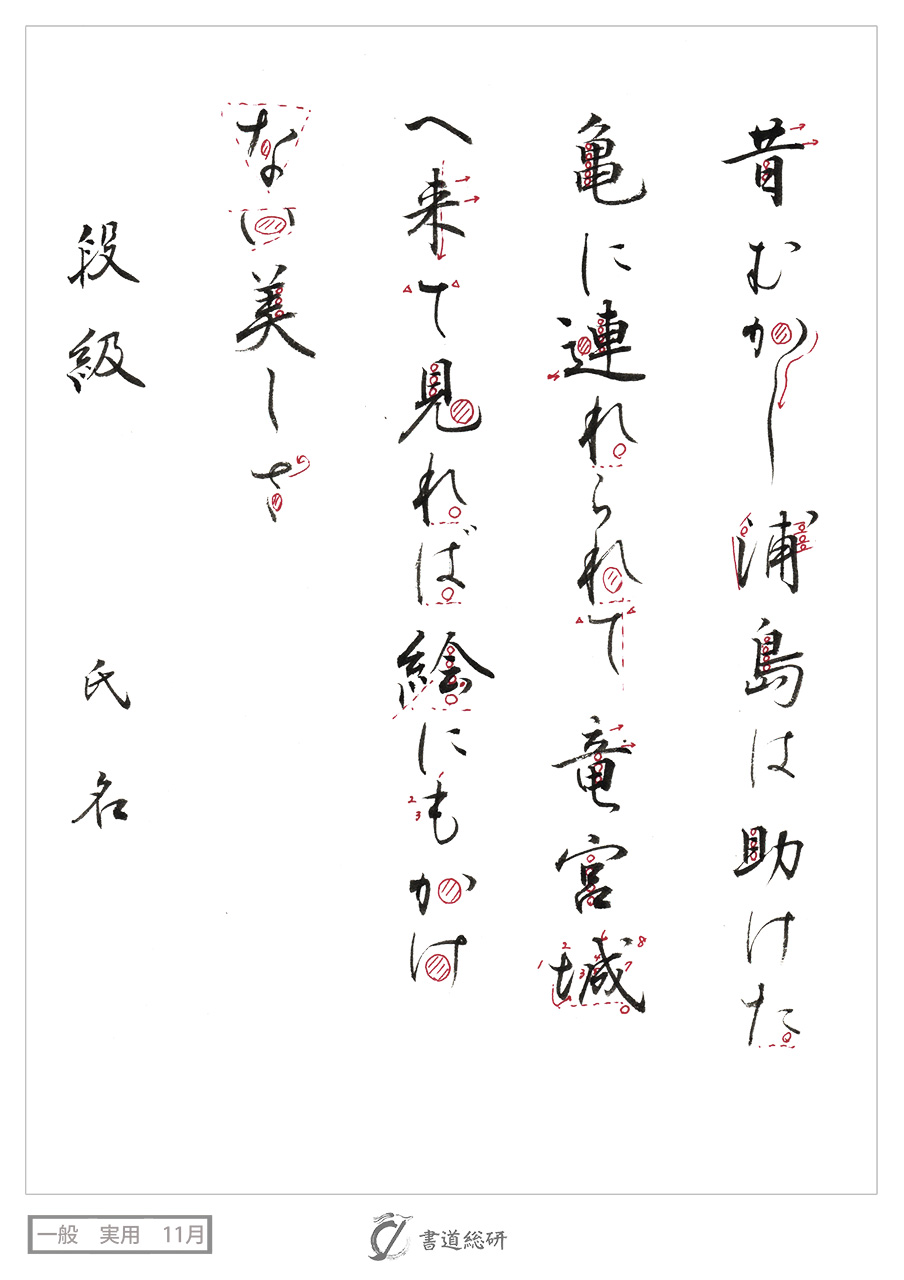 昔むかし浦島は助けた
亀に連れられて竜宮城
へ来て見れば絵にもかけ
ない美しさ
段級 氏名
一般 実用 11月
書道総研